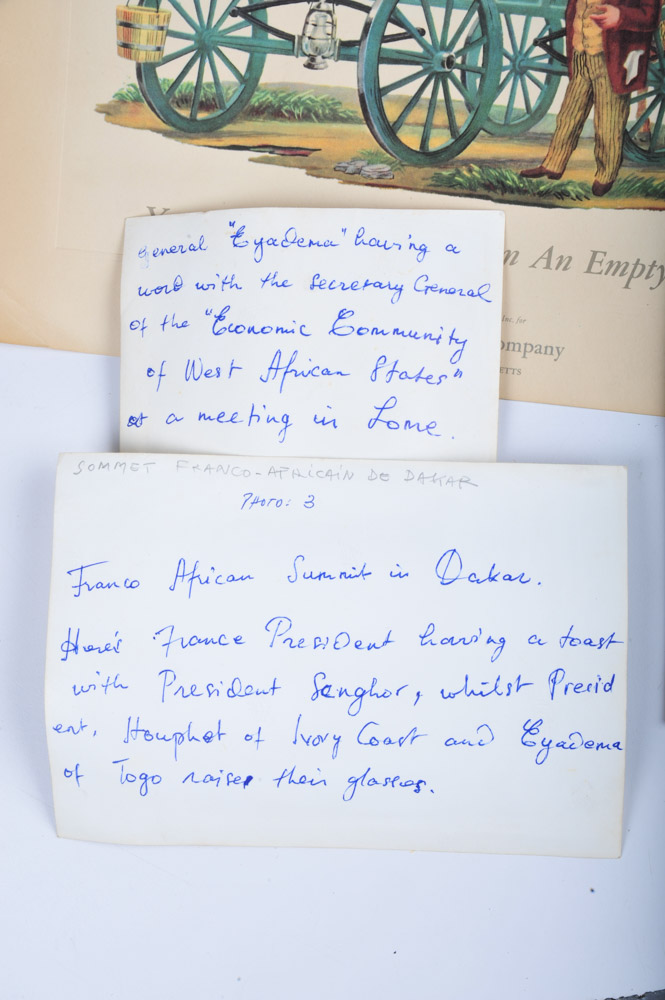 n An Empty
Inc. for
ompany
ETTS
General "Eyadema" having a
word with the secretary General
of the "Economic Community
of West African States"
at a meeting in Lome.
SOMMET FRANCO-AFRICAIN DE DAKAR
PHOTO: 3
Franco African Summit in Dakar.
Here's France President having a toast
with President Senghor, whilst Presid
ent. Houphet of Ivory Coast and Eyadema
of Togo raises their glasses.